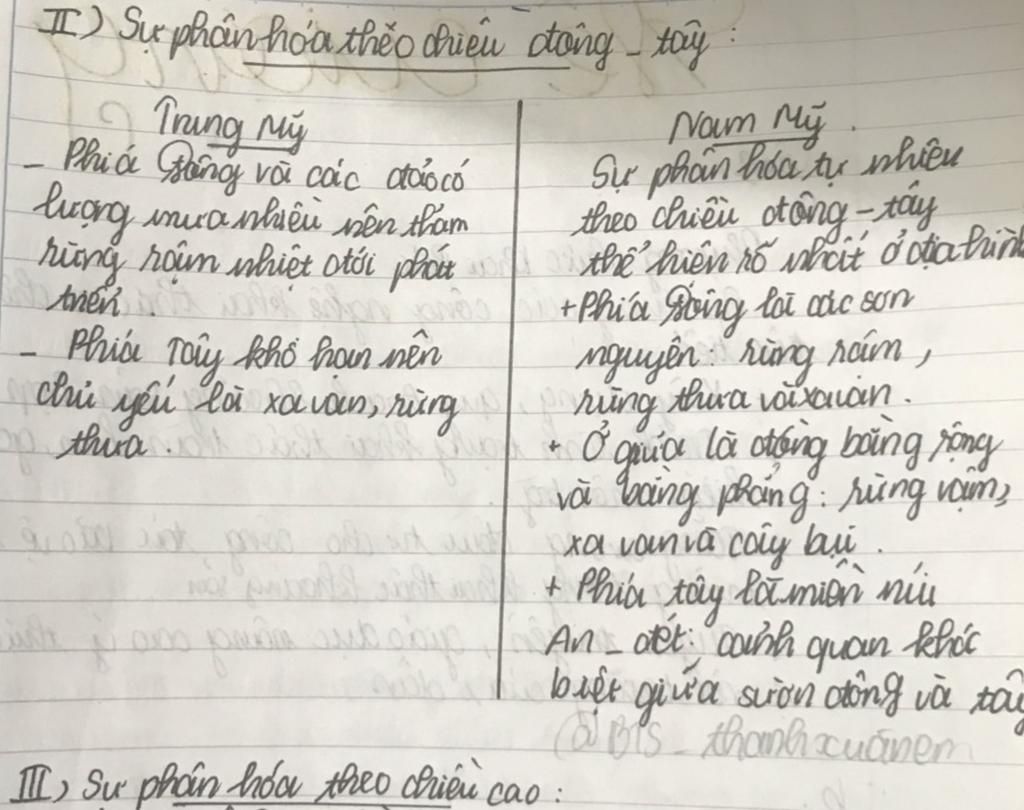 II) Sự phân hóa theo chiều đông - tây :
Trung Mỹ
- Phía Đông và các đảo có
lượng mưa nhiều nên thảm
rừng rậm nhiệt đới phát
triển.
- Phía Tây khô hạn nên
chủ yếu là xa van, rừng
thưa.
Nam Mỹ.
Sự phân hóa tự nhiên
theo chiều đông - tây
thể hiện rõ nhất ở địa hình
+ Phía Đông là các sơn
nguyên : rừng rậm,
rừng thưa và xavan.
+ Ở giữa là đồng bằng rộng
và bằng phẳng : rừng rậm,
xa van và cây bụi.
+ Phía tây là miền núi
An - đét : cảnh quan khác
biệt giữa sườn đông và tây
@BTS - thanhxuânem
III) Sự phân hóa theo chiều cao :